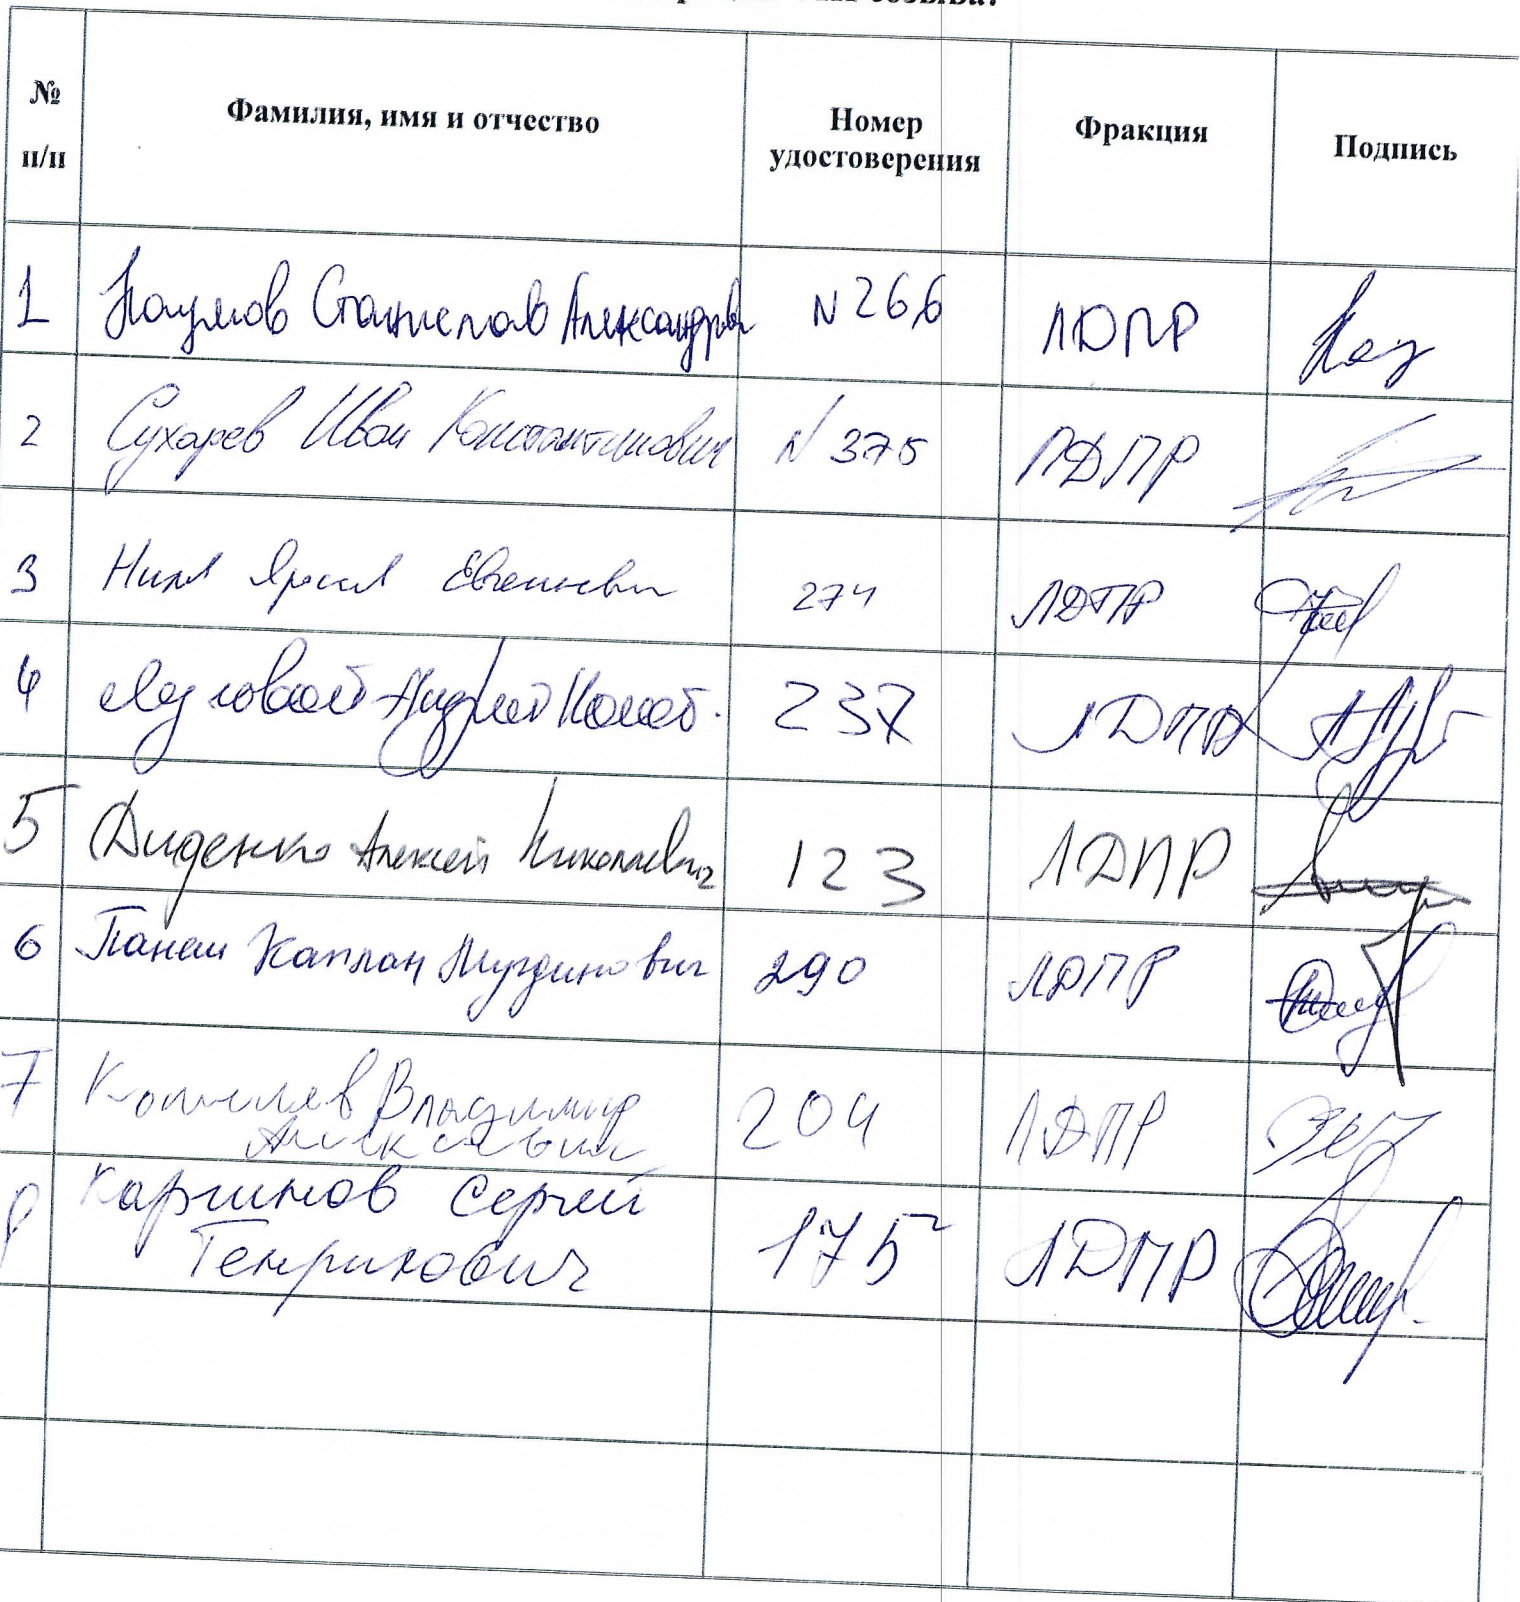 созыва:
№
п/п
Фамилия, имя и отчество
Номер
удостоверения
Фракция
Подпись
1 Наумов Станислав Александрович N 266 ЛДПР Нау
2 Сухарев Иван Константинович N 375 ЛДПР
3 Нилов Ярослав Евгеньевич 274 ЛДПР
4 Луговой Андрей Конст. 237 ЛДПР
5 Диденко Алексей Николаевич 123 ЛДПР
6 Панеш Каплан Мугдинович 290 ЛДПР
7 Кошелев Владимир 204 ЛДПР
Алексеевич
8 Каргинов Сергей 175 ЛДПР
Генрихович